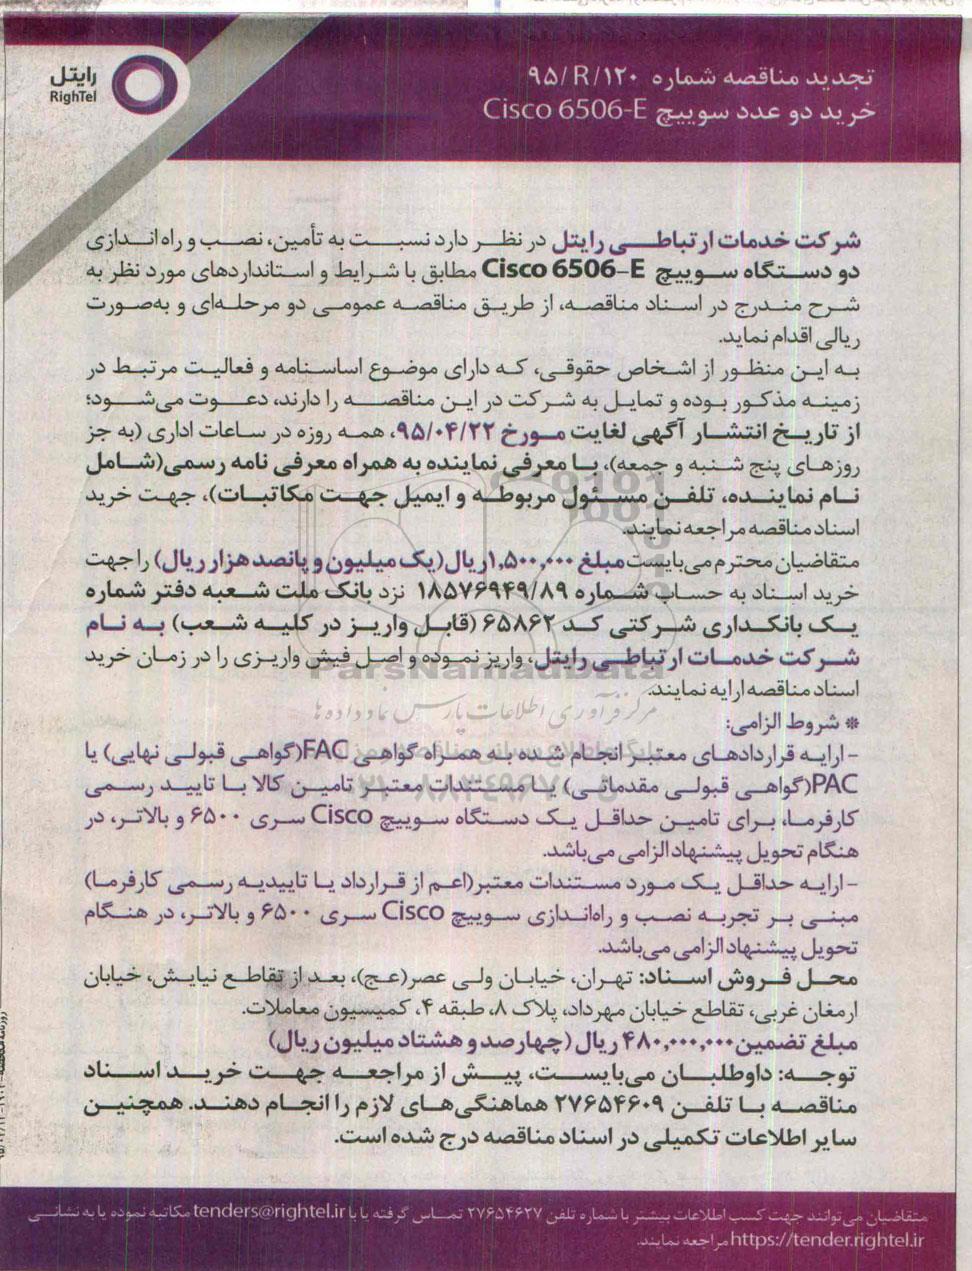 رایتل
RighTel
تجدید مناقصه شماره ۹۵/R/۱۲۰
خرید دو عدد سوییچ Cisco 6506-E
شرکت خدمات ارتباطی رایتل در نظر دارد نسبت به تأمین، نصب و راه اندازی
دو دستگاه سوییچ Cisco 6506-E مطابق با شرایط و استانداردهای مورد نظر به
شرح مندرج در اسناد مناقصه، از طریق مناقصه عمومی دو مرحله‌ای و به‌صورت
ریالی اقدام نماید.
به این منظور از اشخاص حقوقی، که دارای موضوع اساسنامه و فعالیت مرتبط در
زمینه مذکور بوده و تمایل به شرکت در این مناقصه را دارند، دعوت می‌شود؛
از تاریخ انتشار آگهی لغایت مورخ ۹۵/۰۴/۲۲، همه روزه در ساعات اداری (به جز
روزهای پنج شنبه و جمعه)، با معرفی نماینده به همراه معرفی نامه رسمی(شامل
نام نماینده، تلفن مسئول مربوطه و ایمیل جهت مکاتبات)، جهت خرید
اسناد مناقصه مراجعه نمایند.
متقاضیان محترم می‌بایست مبلغ ۱,۵۰۰,۰۰۰ ریال (یک میلیون و پانصد هزار ریال) را جهت
خرید اسناد به حساب شماره ۱۸۵۷۶۹۴۹/۸۹ نزد بانک ملت شعبه دفتر شماره
یک بانکداری شرکتی کد ۶۵۸۶۲ (قابل واریز در کلیه شعب) به نام
شرکت خدمات ارتباطی رایتل، واریز نموده و اصل فیش واریزی را در زمان خرید
اسناد مناقصه ارایه نمایند.
ParsNamadData
مرکز فرآوری اطلاعات پارس نماد داده ها
* شروط الزامی:
- ارایه قراردادهای معتبر انجام شده به همراه گواهی FAC(گواهی قبولی نهایی) یا
PAC(گواهی قبولی مقدماتی) یا مستندات معتبر تامین کالا با تایید رسمی
کارفرما، برای تامین حداقل یک دستگاه سوییچ Cisco سری ۶۵۰۰ و بالاتر، در
هنگام تحویل پیشنهاد الزامی می‌باشد.
- ارایه حداقل یک مورد مستندات معتبر(اعم از قرارداد یا تاییدیه رسمی کارفرما)
مبنی بر تجربه نصب و راه‌اندازی سوییچ Cisco سری ۶۵۰۰ و بالاتر، در هنگام
تحویل پیشنهاد الزامی می‌باشد.
محل فروش اسناد: تهران، خیابان ولی عصر(عج)، بعد از تقاطع نیایش، خیابان
ارمغان غربی، تقاطع خیابان مهرداد، پلاک ۸، طبقه ۴، کمیسیون معاملات.
مبلغ تضمین ۴۸۰,۰۰۰,۰۰۰ ریال (چهارصد و هشتاد میلیون ریال)
توجه: داوطلبان می‌بایست، پیش از مراجعه جهت خرید اسناد
مناقصه با تلفن ۲۷۶۵۴۶۰۹ هماهنگی‌های لازم را انجام دهند. همچنین
سایر اطلاعات تکمیلی در اسناد مناقصه درج شده است.
متقاضیان می‌توانند جهت کسب اطلاعات بیشتر با شماره تلفن ۲۷۶۵۴۶۲۷ تماس گرفته یا با tenders@rightel.ir مکاتبه نموده یا به نشانی
https://tender.rightel.ir مراجعه نمایند.